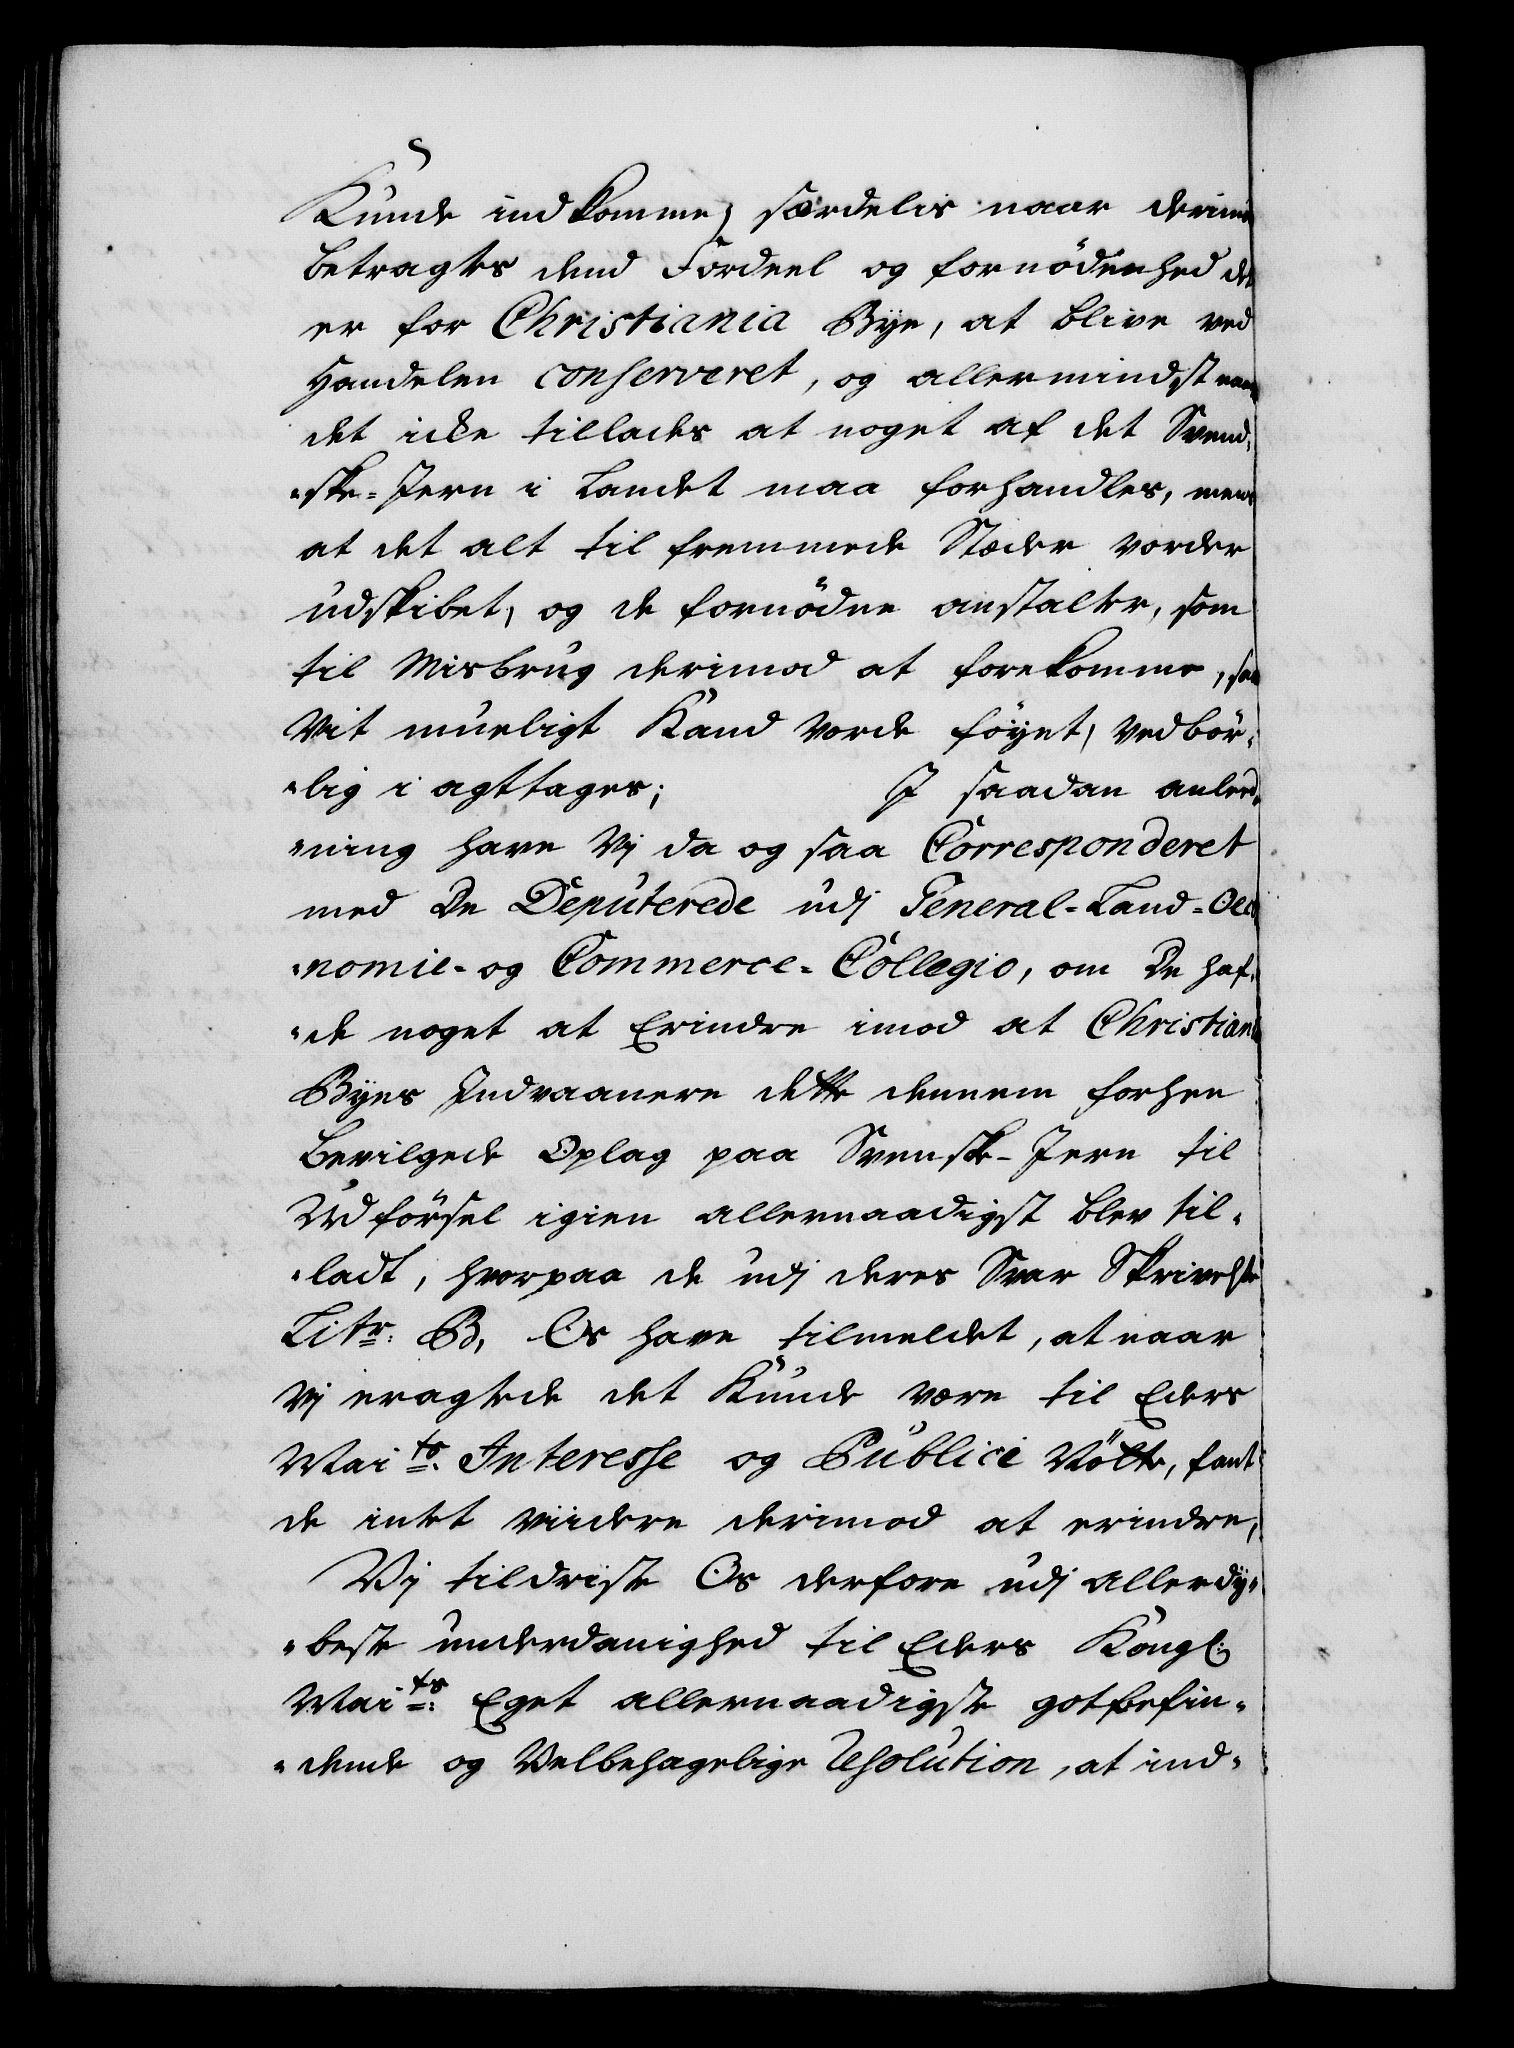 Kunde indkomme, særdelis naar derimod
betragtes dend Fordeel og fornödenhed det
er for Christiania Bÿe, at blive ved
Handelen conserveret, og allermindst naar
det icke tillades at noget af det Svend-
-ske-Jern i Landet maa forhandles, mens
at det alt til fremmede Stæder vorder
udskibet, og de fornödne anstalter, som
til Misbrug derimod at forekomme, saa
vit mueligt Kand vorde föyet, vedbör-
-lig i agttages; J saadan anled-
-ning have Vj da og saa Corresponderet
med De Deputerede udj General-Land-Oeco
-nomie- og Commerce-Collegio, om De haf-
-de noget at Erindre imod at Christiania
Bÿes Indvaanere dette dennem forhen
bevilgede Oplag paa Svensk-Jern til
Udförsel igien allernaadigst blev til-
-ladt, hvorpaa de udj deres Svar Skrivelse
Litr: B, Os have tilmeldet, at naar
Vj eragtede det Kunde være til Eders
Maits: Interesse og Publici Nötte, fant
de intet viidere derimod at erindre,
Vj tildriste Os derfore udj allerdÿ-
-beste underdanighed til Eders Kongl:
Maits: Eget allernaadigste gotbefin-
-dende og Velbehagelige Resolution, at ind-